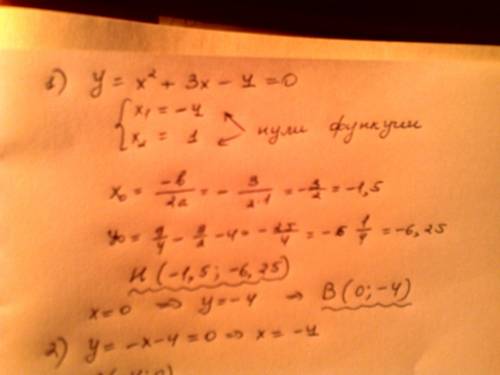 1) y = x² + 3x - 4 = 0
{ x₁ = -4
x₂ = 1 нули функции
x₀ = -b/2a = - 3/2·1 = -3/2 = -1,5
y₀ = 9/4 - 9/2 - 4 = -25/4 = -6 1/4 = -6,25
К(-1,5; -6,25)
x=0 ⇒ y=-4 ⇒ B(0; -4)
2) y = -x-4=0 ⇒ x = -4